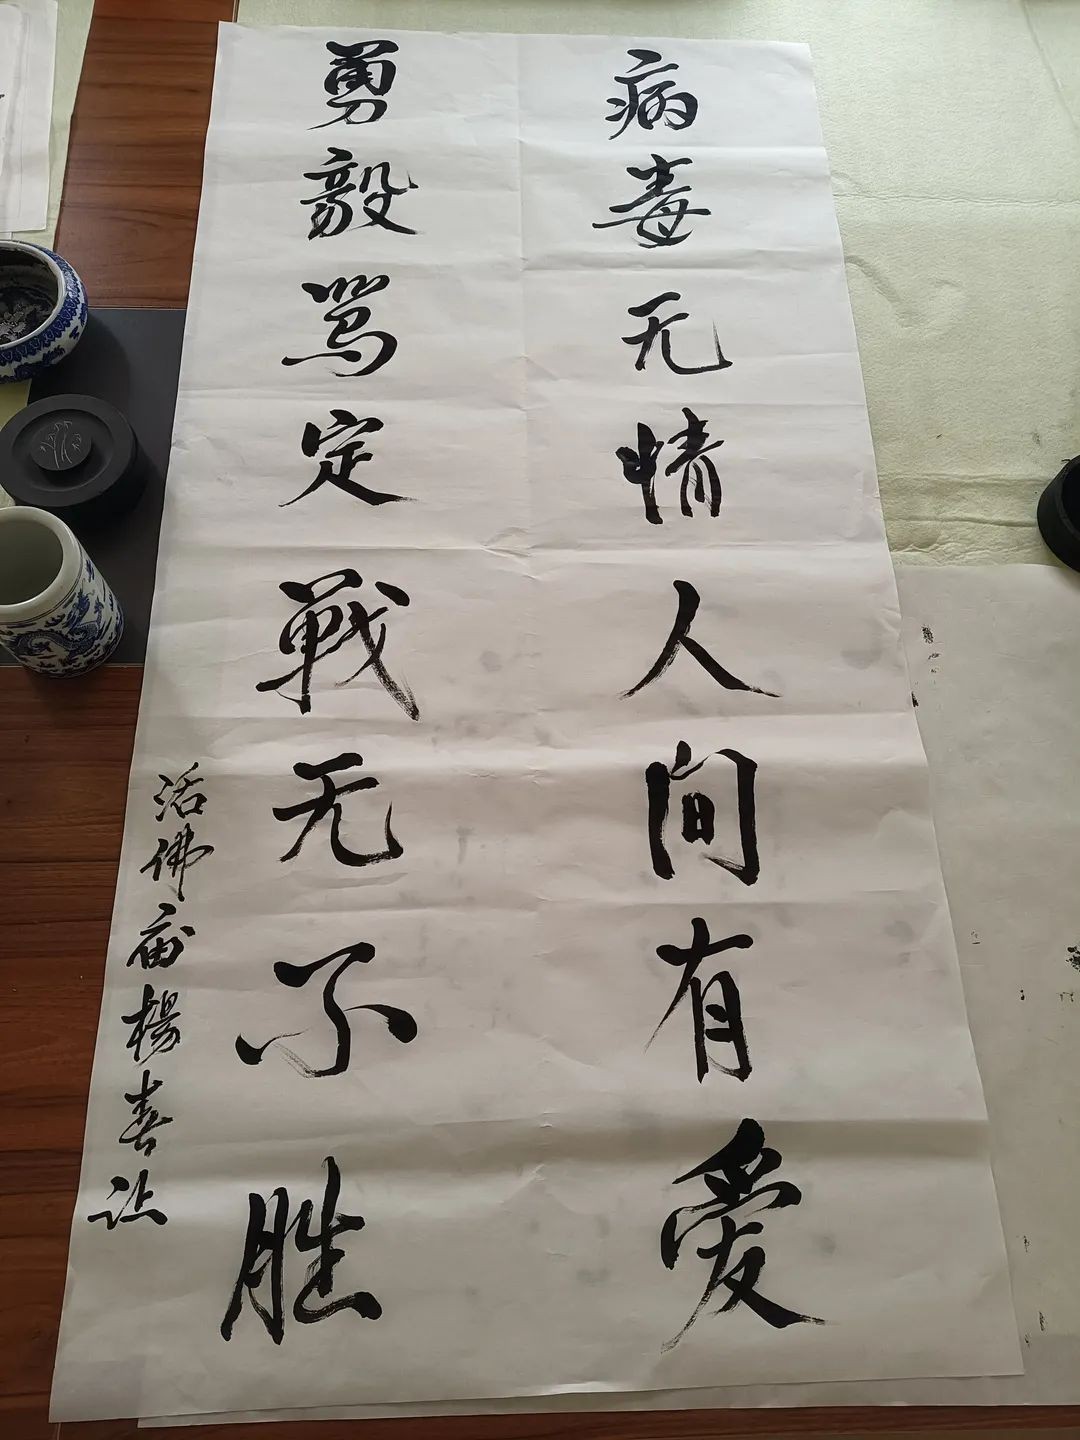 病毒无情人间有爱
勇毅笃定战无不胜
活佛庙杨喜让